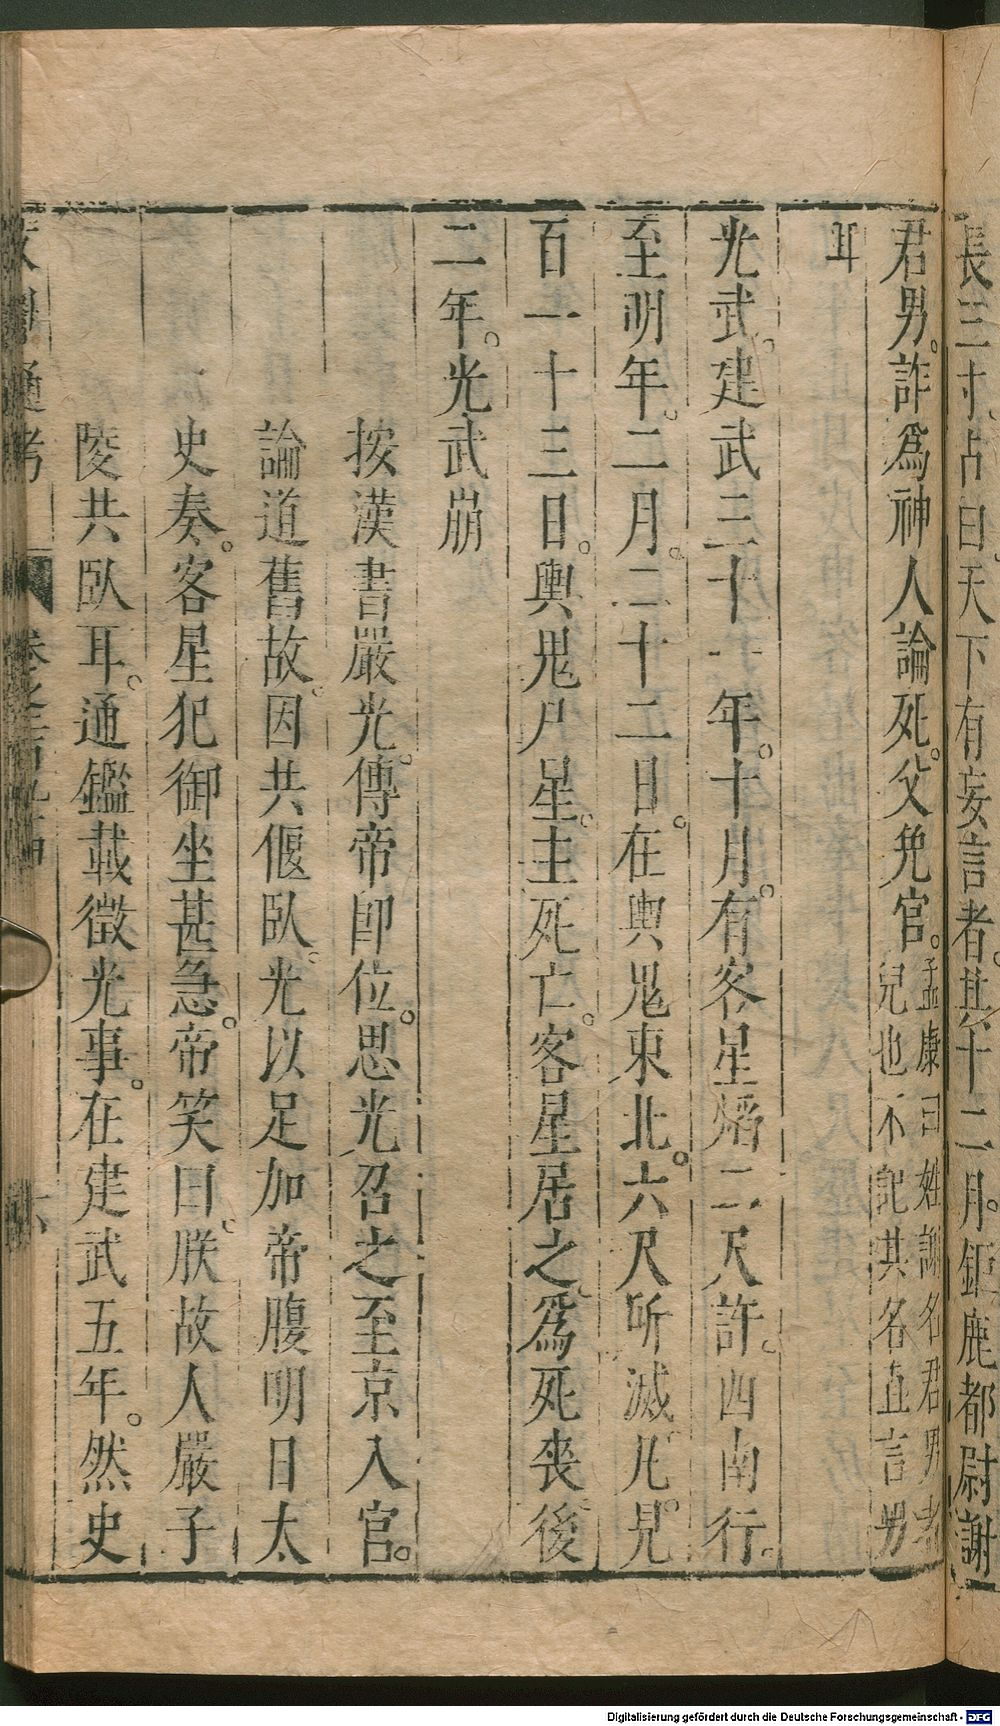 長三寸。占曰。天下有妄言者。其十二月。鉅鹿都尉謝
君男。詐爲神人論死。父免官。孟康曰姓謝名君男者
兒也不記其名直言男
耳
光武。建武三十一年。十月。有客星熖二尺許。西南行。
至明年。二月。二十二日。在輿鬼東北。六尺所滅。凡見。
百一十三日。輿鬼尸星。主死亡。客星居之。爲死喪。後
二年。光武崩
按漢書嚴光。傳帝卽位。思光召之至京入官。
論道舊故。因共偃臥。光以足加帝腹明日太
史奏。客星犯御坐甚急。帝笑曰。朕故人嚴子
陵共臥耳。通鑑載徵光事。在建武五年。然史
通考
六
Digitalisierung gefördert durch die Deutsche Forschungsgemeinschaft - DFG